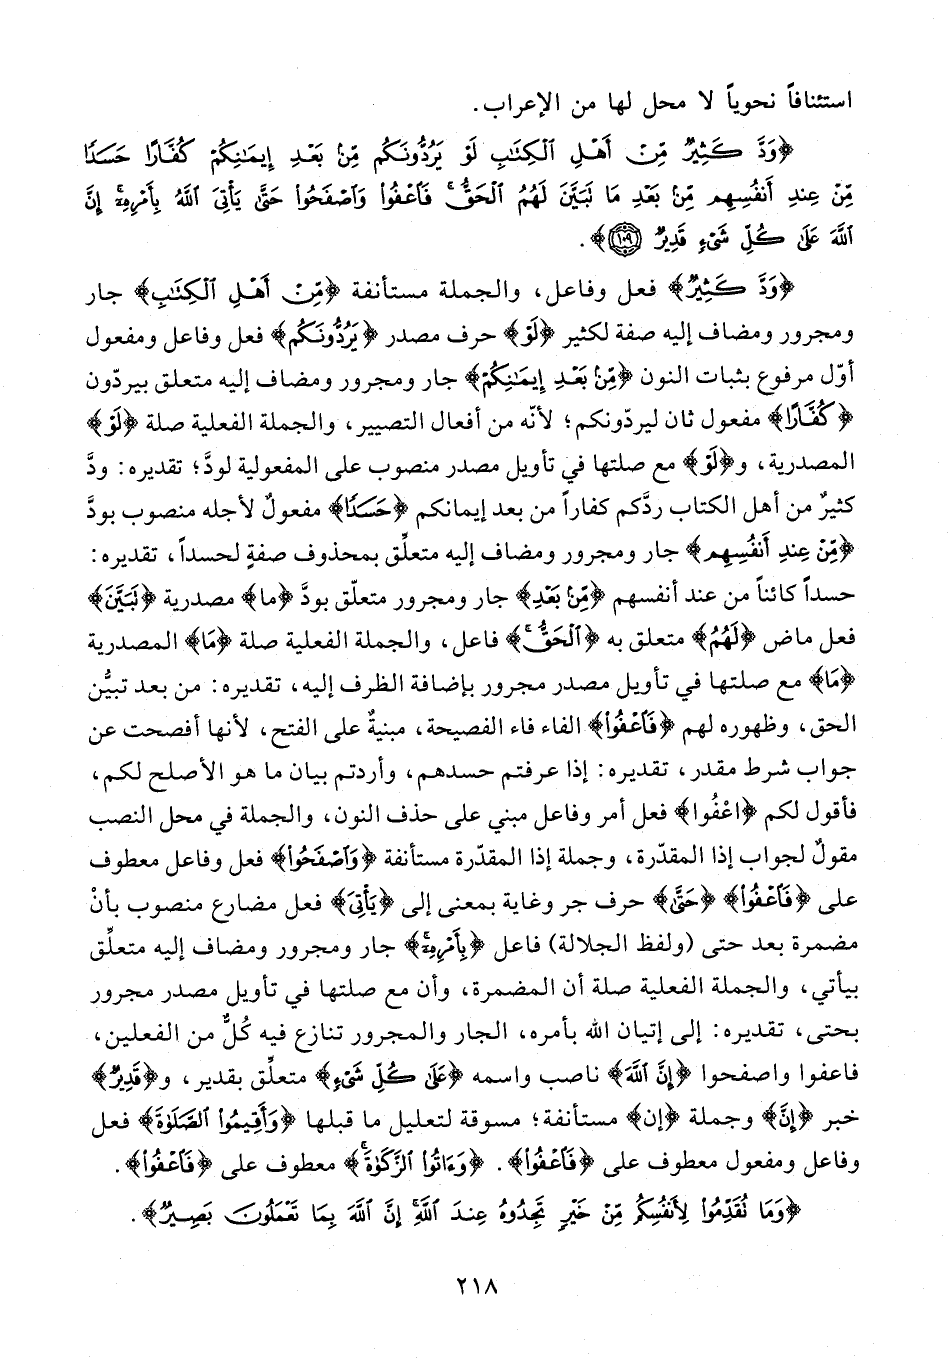 استئنافاً نحوياً لا محل لها من الإعراب.
﴿وَدَّ كَثِيرٌ مِّنْ أَهْلِ ٱلْكِتَٰبِ لَوْ يَرُدُّونَكُم مِّنۢ بَعْدِ إِيمَٰنِكُمْ كُفَّارًا حَسَدًا
مِّنْ عِندِ أَنفُسِهِم مِّنۢ بَعْدِ مَا تَبَيَّنَ لَهُمُ ٱلْحَقُّ ۖ فَٱعْفُوا۟ وَٱصْفَحُوا۟ حَتَّىٰ يَأْتِىَ ٱللَّهُ بِأَمْرِهِۦٓ ۗ إِنَّ
ٱللَّهَ عَلَىٰ كُلِّ شَىْءٍ قَدِيرٌ ١٠٩﴾.
﴿وَدَّ كَثِيرٌ﴾ فعل وفاعل، والجملة مستأنفة ﴿مِّنْ أَهْلِ ٱلْكِتَٰبِ﴾ جار
ومجرور ومضاف إليه صفة لكثير ﴿لَوْ﴾ حرف مصدر ﴿يَرُدُّونَكُم﴾ فعل وفاعل ومفعول
أوّل مرفوع بثبات النون ﴿مِّنۢ بَعْدِ إِيمَٰنِكُمْ﴾ جار ومجرور ومضاف إليه متعلق بيردّون
﴿كُفَّارًا﴾ مفعول ثان ليردّونكم؛ لأنّه من أفعال التصيير، والجملة الفعلية صلة ﴿لَوْ﴾
المصدرية، و﴿لَوْ﴾ مع صلتها في تأويل مصدر منصوب على المفعولية لودَّ؛ تقديره: ودَّ
كثيرٌ من أهل الكتاب ردَّكم كفاراً من بعد إيمانكم ﴿حَسَدًا﴾ مفعولٌ لأجله منصوب بودَّ
﴿مِّنْ عِندِ أَنفُسِهِم﴾ جار ومجرور ومضاف إليه متعلِّق بمحذوف صفةٍ لحسداً، تقديره:
حسداً كائناً من عند أنفسهم ﴿مِّنۢ بَعْدِ﴾ جار ومجرور متعلّق بودَّ ﴿ما﴾ مصدرية ﴿تَبَيَّنَ﴾
فعل ماض ﴿لَهُمُ﴾ متعلق به ﴿ٱلْحَقُّ ۖ﴾ فاعل، والجملة الفعلية صلة ﴿مَا﴾ المصدرية
﴿مَا﴾ مع صلتها في تأويل مصدر مجرور بإضافة الظرف إليه، تقديره: من بعد تبيُّن
الحق، وظهوره لهم ﴿فَٱعْفُوا۟﴾ الفاء فاء الفصيحة، مبنيةٌ على الفتح، لأنها أفصحت عن
جواب شرط مقدر، تقديره: إذا عرفتم حسدهم، وأردتم بيان ما هو الأصلح لكم،
فأقول لكم ﴿اعْفُوا﴾ فعل أمر وفاعل مبني على حذف النون، والجملة في محل النصب
مقولٌ لجواب إذا المقدّرة، وجملة إذا المقدّرة مستأنفة ﴿وَٱصْفَحُوا۟﴾ فعل وفاعل معطوف
على ﴿فَٱعْفُوا۟﴾ ﴿حَتَّىٰ﴾ حرف جر وغاية بمعنى إلى ﴿يَأْتِىَ﴾ فعل مضارع منصوب بأنْ
مضمرة بعد حتى (ولفظ الجلالة) فاعل ﴿بِأَمْرِهِۦٓ ۗ﴾ جار ومجرور ومضاف إليه متعلِّق
بيأتي، والجملة الفعلية صلة أن المضمرة، وأن مع صلتها في تأويل مصدر مجرور
بحتى، تقديره: إلى إتيان الله بأمره، الجار والمجرور تنازع فيه كُلٌّ من الفعلين،
فاعفوا واصفحوا ﴿إِنَّ ٱللَّهَ﴾ ناصب واسمه ﴿عَلَىٰ كُلِّ شَىْءٍ﴾ متعلِّق بقدير، و﴿قَدِيرٌ﴾
خبر ﴿إِنَّ﴾ وجملة ﴿إن﴾ مستأنفة؛ مسوقة لتعليل ما قبلها ﴿وَأَقِيمُوا۟ ٱلصَّلَوٰةَ﴾ فعل
وفاعل ومفعول معطوف على ﴿فَٱعْفُوا۟﴾. ﴿وَءَاتُوا۟ ٱلزَّكَوٰةَ ۚ﴾ معطوف على ﴿فَٱعْفُوا۟﴾.
﴿وَمَا تُقَدِّمُوا۟ لِأَنفُسِكُم مِّنْ خَيْرٍ تَجِدُوهُ عِندَ ٱللَّهِ ۗ إِنَّ ٱللَّهَ بِمَا تَعْمَلُونَ بَصِيرٌ﴾.
٢١٨